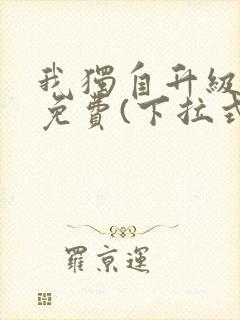 我獨自升級
免費(下拉式
羅京運